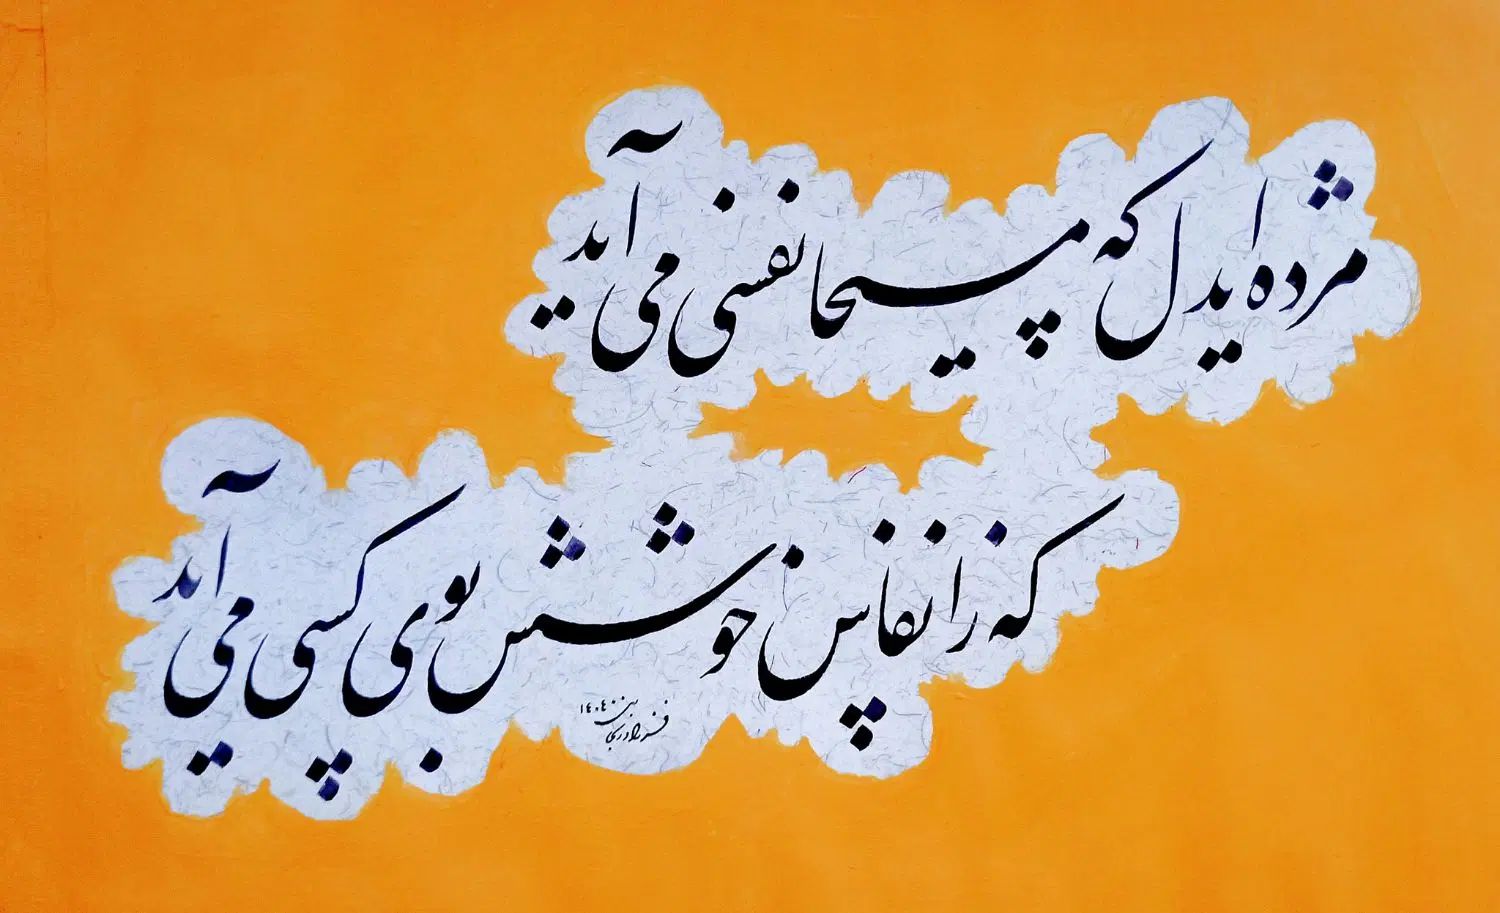 مژده ایدل که مسیحا نفسی می آید
که ز انفاس خوشش بوی کسی می آید
۱۴۰۴